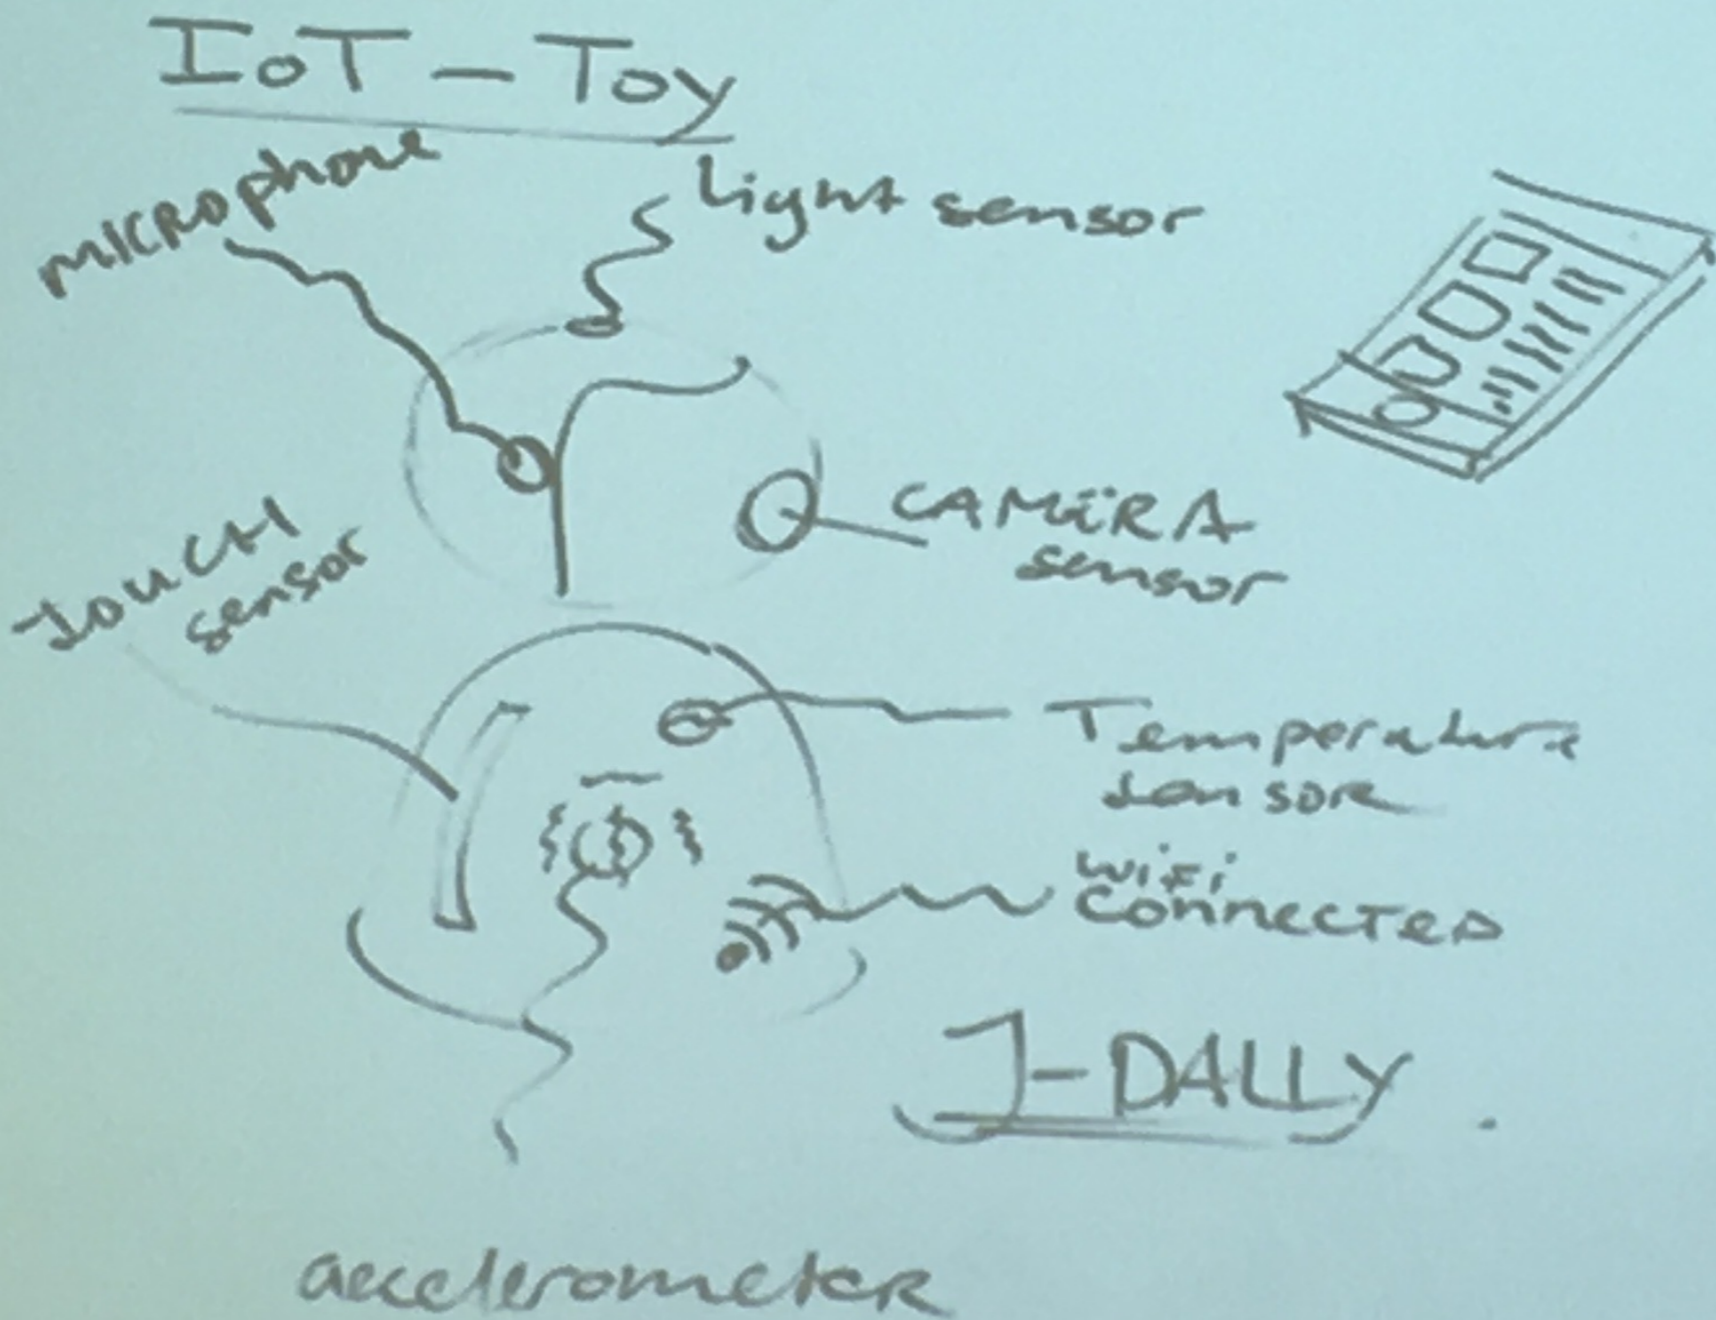 IoT - Toy
microphone
Light sensor
CAMERA
sensor
TOUCH
sensor
Temperature
sensor
wifi
connected
J-DALLY
accelerometer